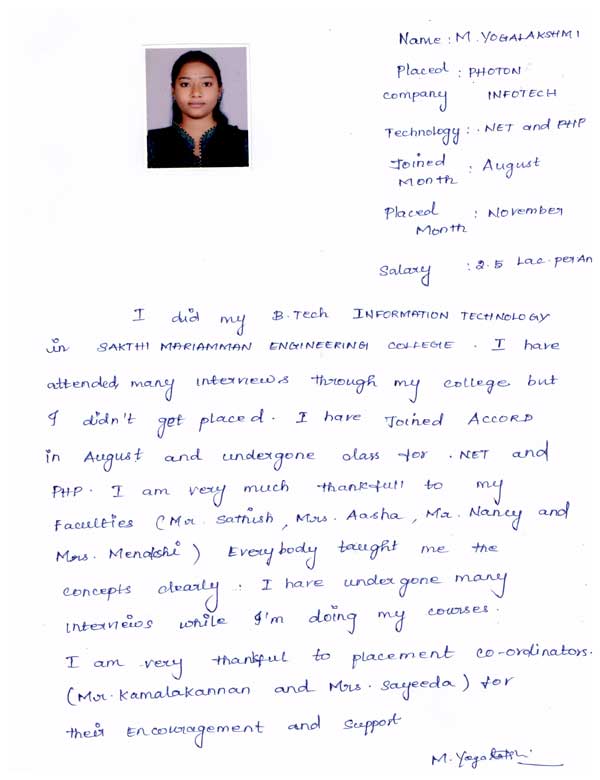 Name : M. YOGALAKSHMI
Placed : PHOTON
company INFOTECH
Technology : .NET and PHP
Joined : August
Month
Placed : November
Month
Salary : 2.5 Lac. per An
I did my B.Tech INFORMATION TECHNOLOGY
in SAKTHI MARIAMMAN ENGINEERING COLLEGE . I have
attended many interviews through my college but
I didn't get placed. I have Joined ACCORD
in August and undergone class for .NET and
PHP. I am very much thankfull to my
Faculties (Mr. Sathish, Mrs. Aasha, Mr. Nancy and
Mrs. Menakshi) Everybody taught me the
concepts clearly. I have undergone many
interviews while I'm doing my courses.
I am very thankful to placement co-ordinators.
(Mr. Kamalakannan and Mrs. Sayeeda) for
their Encouragement and Support
M. Yogalakshmi